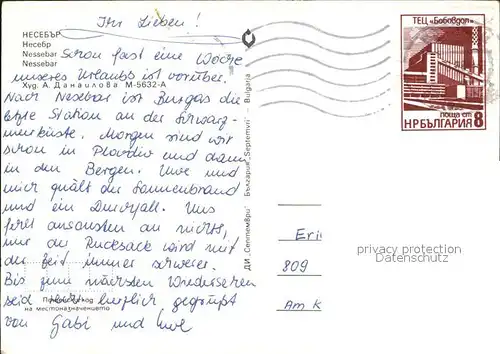 Ihr Lieben!
НЕСЕБЪР
Несебр
Nessebar
Nessebar
Худ. А. Данаилова М-5632-А
Schon fast eine Woche
unseres Urlaubs ist vorüber.
Nach Nesebar ist Burgas die
letzte Station an der Schwarz-
meerküste. Morgen sind wir
schon in Plovdiv und dann
in den Bergen. Uwe und
mich quält der Sonnenbrand
und ein Durchfall. Uns
fehlt ansonsten an nichts,
nur der Rucksack wird mit
der Zeit immer schwerer.
Bis zum nächsten Wiedersehen
seid herzlich gegrüßt
von Gabi und Uwe
на местоназначението
ДИ „Септември" България "Septemvri" - Bulgaria
ТЕЦ „Бобовдол"
поща ст
НРБЪЛГАРИЯ 8
Eri
809
Am K
privacy protection
DATENSCHUTZ